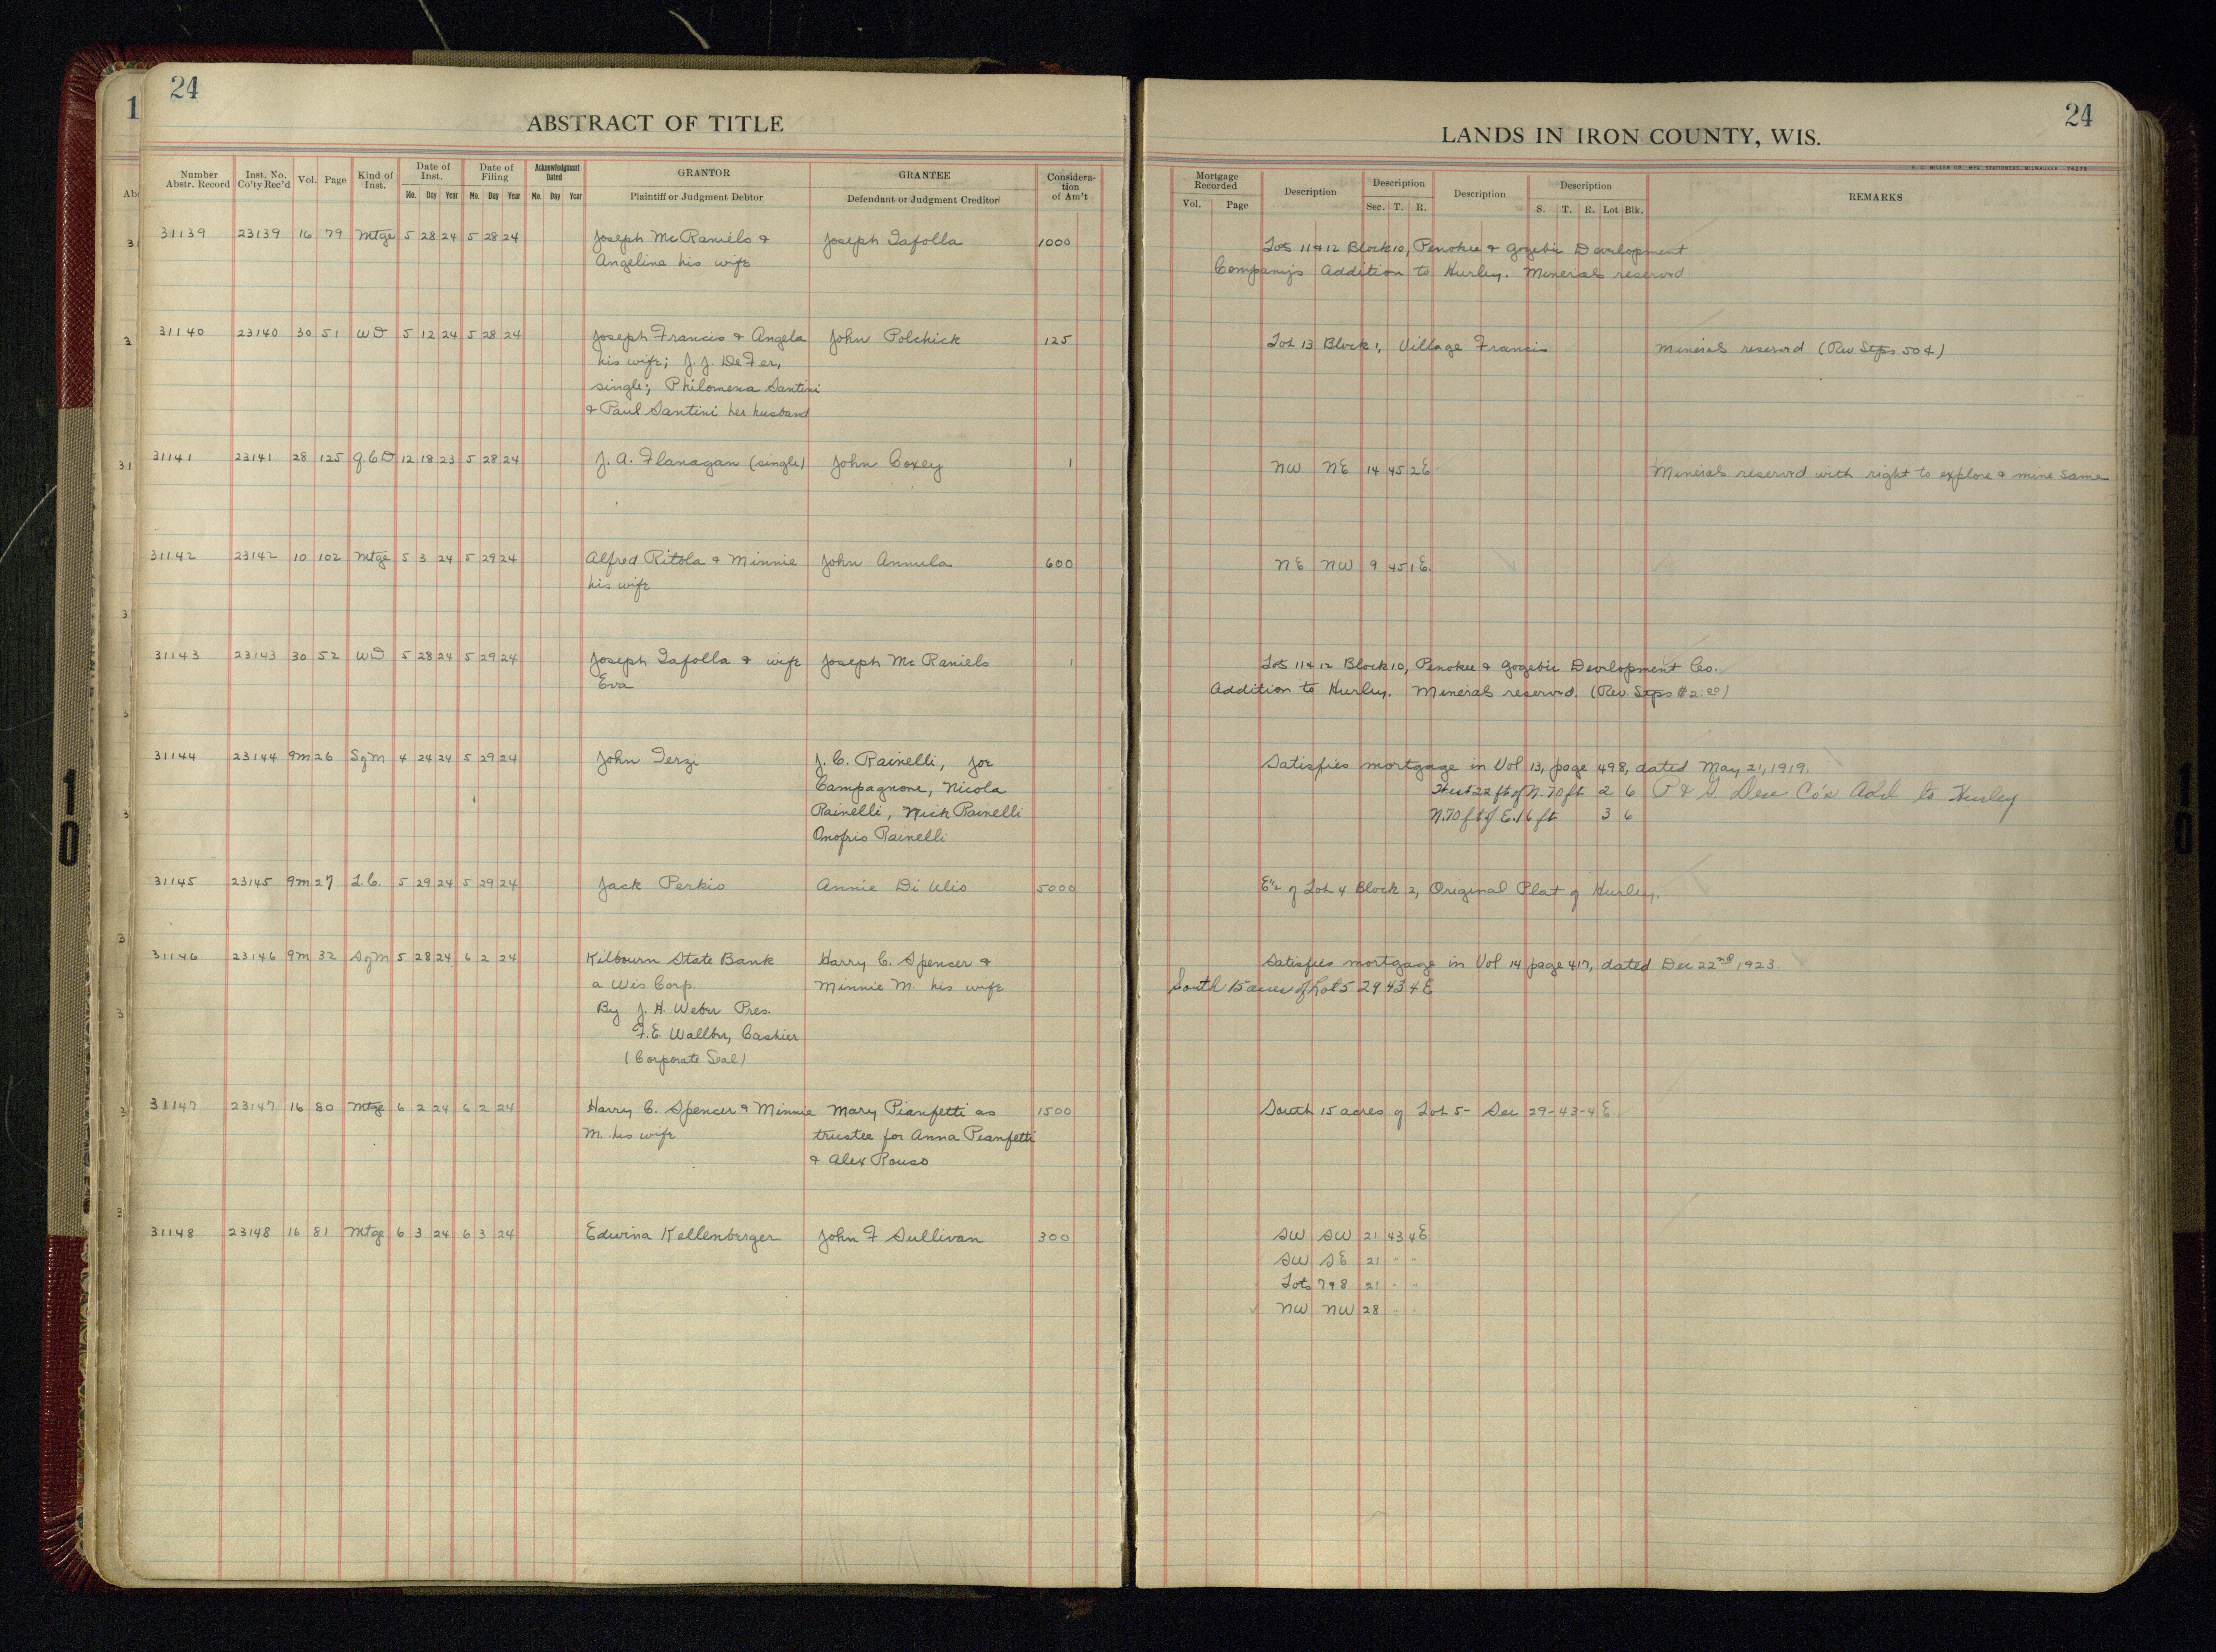 24
ABSTRACT OF TITLE
Number Abstr. Record
Inst. No. Co'ty Rec'd
Vol.
Page
Kind of Inst.
Date of Inst.
Mo. Day Year
Date of Filing
Mo. Day Year
Acknowledgment Dated
Mo. Day Year
GRANTOR
Plaintiff or Judgment Debtor
GRANTEE
Defendant or Judgment Creditor
Considera-
tion
of Am't
31139 23139 16 79 Mtge 5 28 24 5 28 24 Joseph McRaniels & Joseph Tafolla 1000
Angelina his wife
31140 23140 30 51 WD 5 12 24 5 28 24 Joseph Francis & Angela John Polchick 125
his wife; J. J. DeFer,
single; Philomena Santini
& Paul Santini her husband
31141 23141 28 125 Q.C.D 12 18 23 5 28 24 J. A. Flanagan (single) John Coxey 1
31142 23142 10 102 Mtge 5 3 24 5 29 24 Alfred Ritola & Minnie John Annula 600
his wife
31143 23143 30 52 WD 5 28 24 5 29 24 Joseph Tafolla & wife Joseph McRaniels 1
Eva
31144 23144 9m 26 SqM 4 24 24 5 29 24 John Terzi J. C. Rainelli, Joe
Campagnone, Nicola
Rainelli, Nick Rainelli
Onofrio Rainelli
31145 23145 9m 27 L.C. 5 29 24 5 29 24 Jack Perkis Annie Di Ulio 5000
31146 23146 9m 32 SqM 5 28 24 6 2 24 Kilbourn State Bank Harry C. Spencer &
a Wis Corp. Minnie M. his wife
By J. H. Weber Pres.
F. E. Wallber, Cashier
(Corporate Seal)
31147 23147 16 80 Mtge 6 2 24 6 2 24 Harry C. Spencer & Minnie Mary Pianfetti as 1500
M. his wife trustee for Anna Pianfetti
& Alex Rouso
31148 23148 16 81 Mtge 6 3 24 6 3 24 Edwina Kellenberger John F Sullivan 300
24
LANDS IN IRON COUNTY, WIS.
H. C. MILLER CO., MFG. STATIONERS, MILWAUKEE
Mortgage Recorded
Vol. Page
Description
Description
Sec. T. R.
Description
Description
S. T. R. Lot Blk.
REMARKS
Lots 11 & 12 Block 10, Penokee & Gogebic Development
Company's Addition to Hurley. Minerals reserved
Lot 13 Block 1, Village Francis Minerals reserved (Rev Stps 50¢)
NW NE 14 45 2E Minerals reserved with right to explore & mine same
NE NW 9 45 1E.
Lots 11 & 12 Block 10, Penokee & Gogebic Development Co.
Addition to Hurley. Minerals reserved. (Rev. Stps $2.00)
Satisfies mortgage in Vol 13, page 498, dated May 21, 1919.
West 22 ft of N. 70 ft 2 6 P & G. Dev Co's Add to Hurley
N. 70 ft of E. 16 ft 3 6
E½ of Lot 4 Block 2, Original Plat of Hurley.
Satisfies mortgage in Vol 14 page 417, dated Dec 22nd, 1923.
South 15 acres of Lot 5 29 43 4E
South 15 acres of Lot 5 - Sec 29-43-4E
SW SW 21 43 4E
SW SE 21 " "
Lots 7 & 8 21 " "
NW NW 28 " "